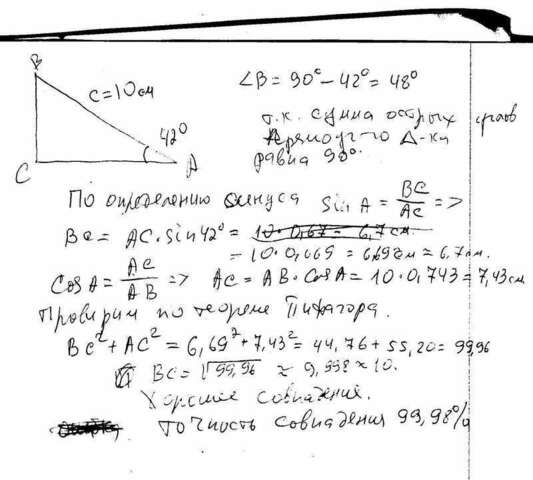 B
c=10см
42°
C
A
∠B = 90° − 42° = 48°
т.к. сумма острых углов
прямоуг-го Δ-ка
равна 90°.
По определению синуса sin A = BC/AC =>
BC = AC·sin42° = 10·0,67 = 6,7 см.
= 10·0,669 = 6,69см ≈ 6,7см.
cosA = AC/AB => AC = AB·cosA = 10·0,743 = 7,43см
Проверим по теореме Пифагора.
BC² + AC² = 6,69² + 7,43² = 44,76 + 55,20 = 99,96
BC = √99,96 ≈ 9,998 ≈ 10.
Хорошее совпадение.
точность совпадения 99,98%